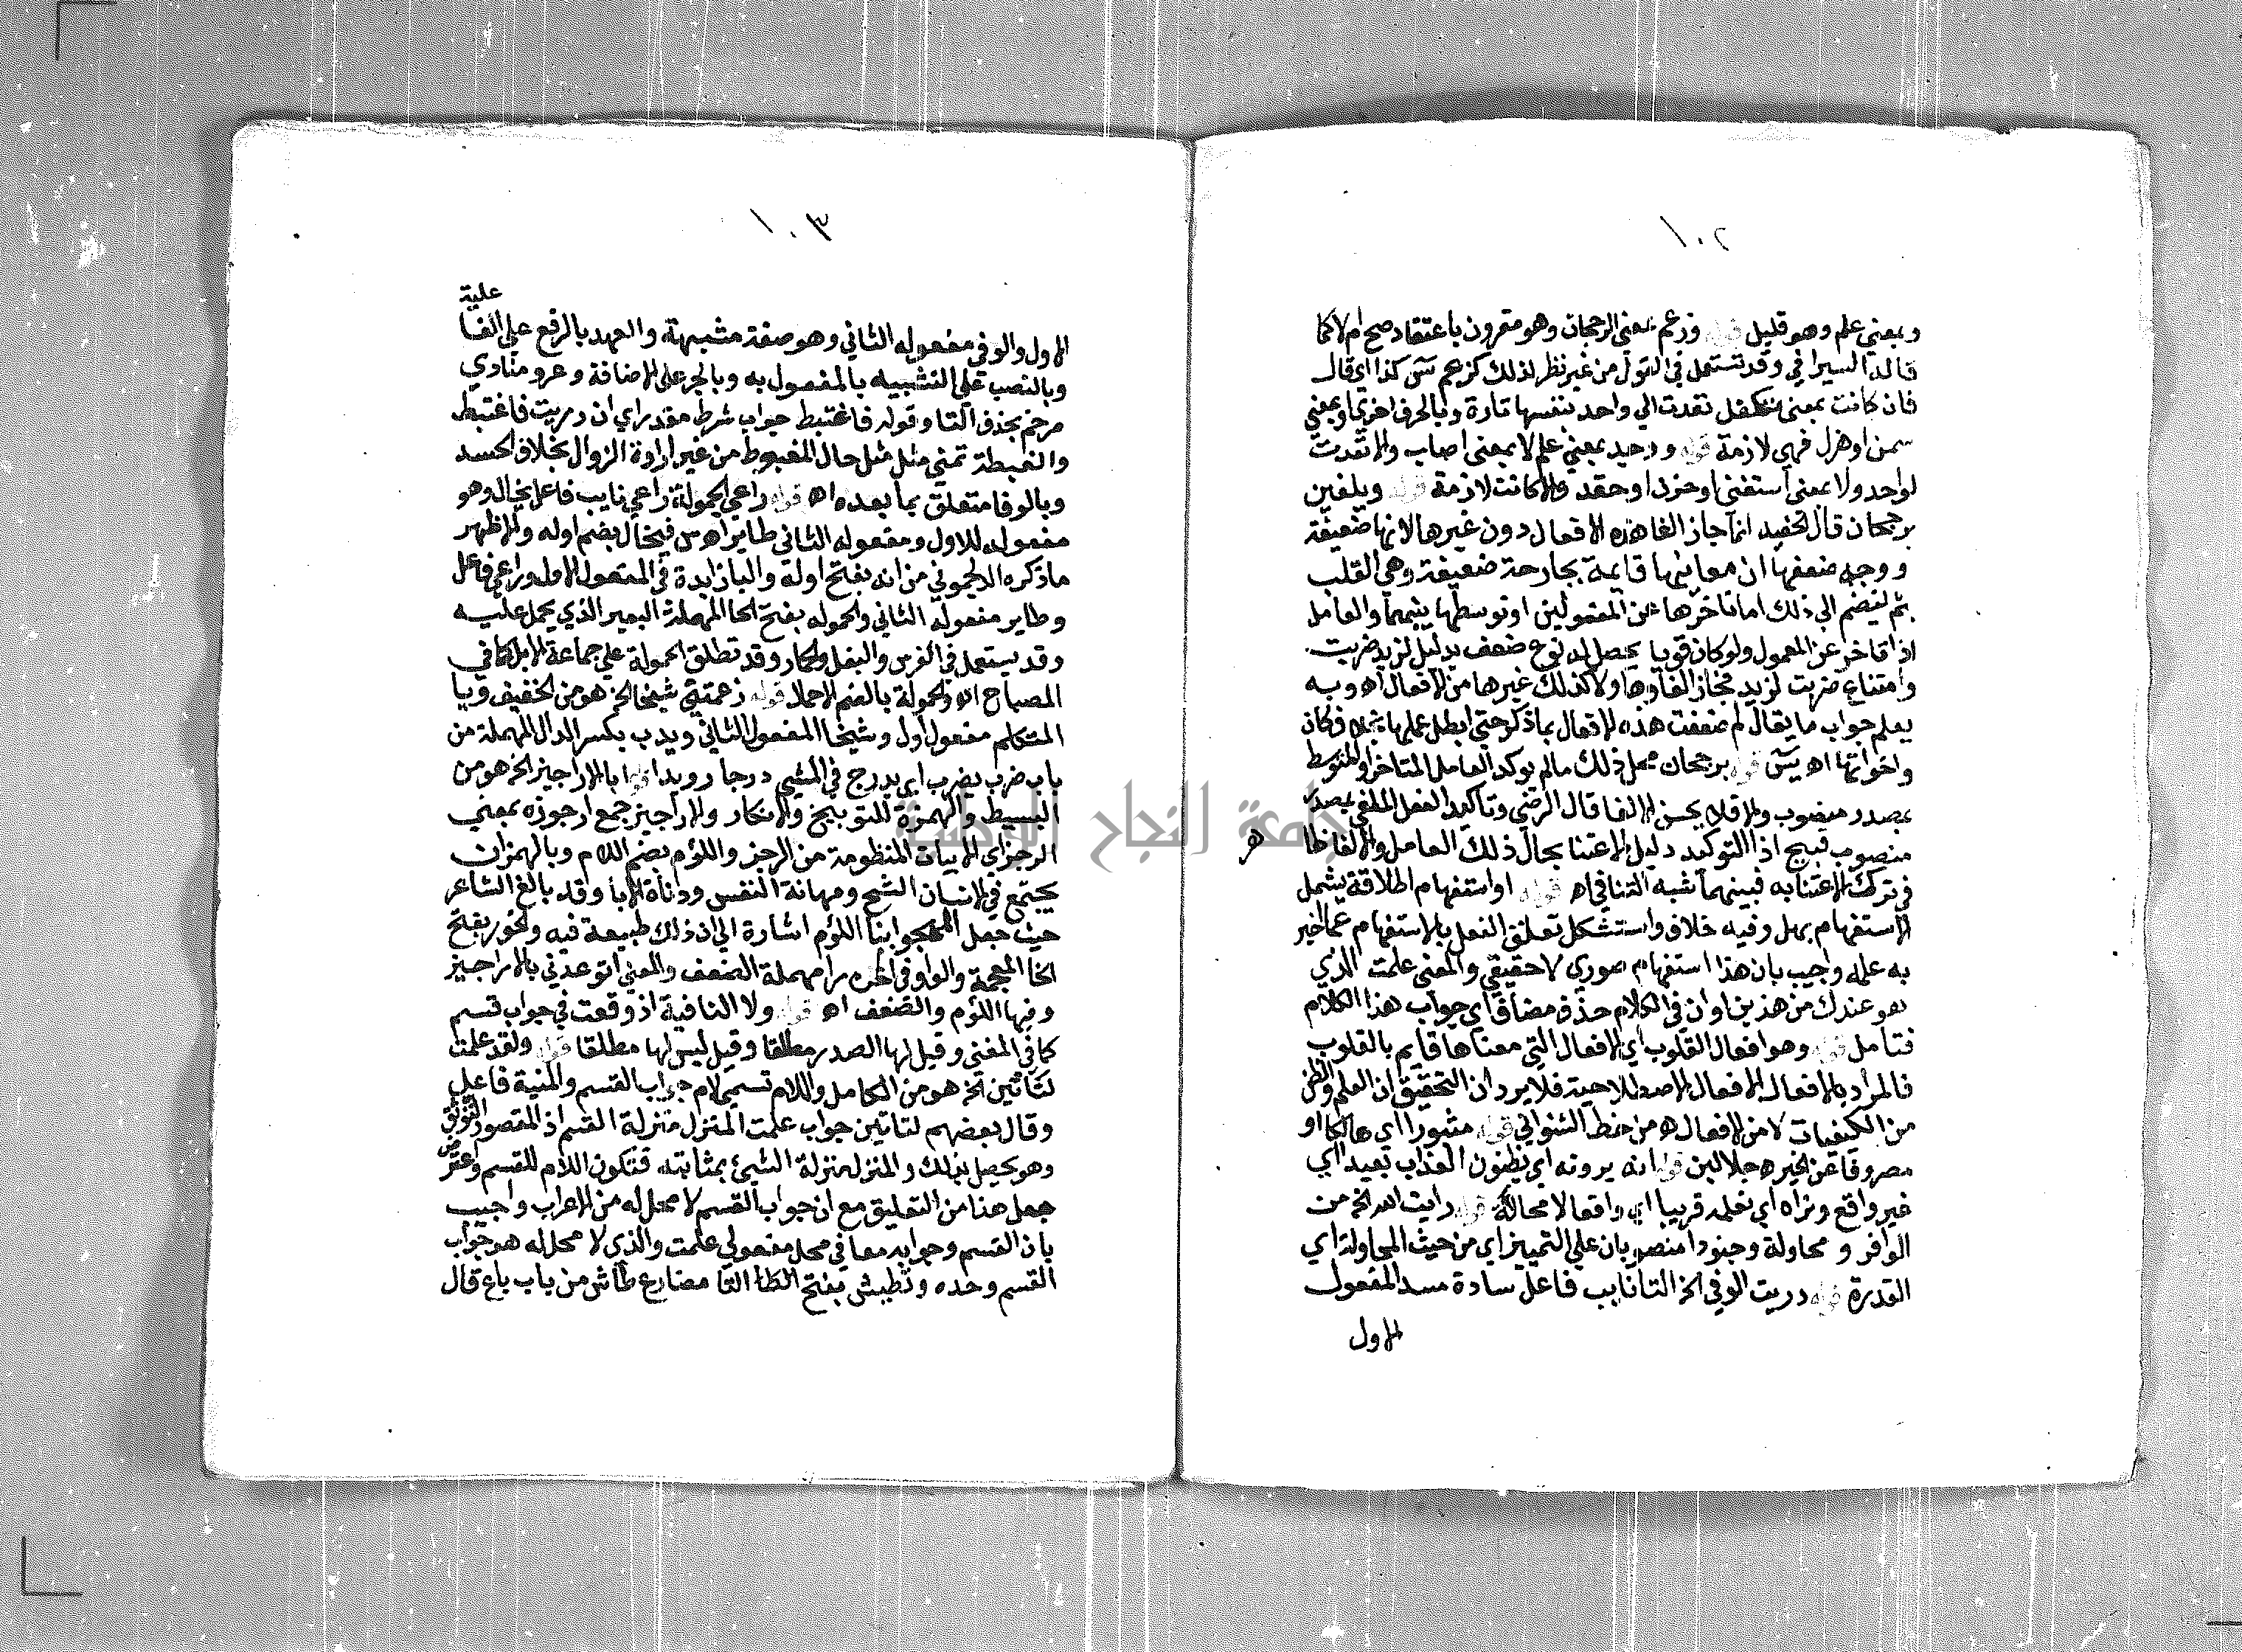 ١٠٢
وبمعني علم وهو قليل قوله وزعم بمعني الرجحان وهو مقرون باعتقاد صح ام لا كما
قاله السيرافي وقد تستعمل في القول من غير نظر لذلك كزعم س كذا اي قال
فان كانت بمعني تكفل تعدت الي واحد بنفسها تارة وبالحرف اخري او بمعني
سمن او هزل فهي لازمة قوله ووجد بمعني علم لا بمعني اصاب والا تعدت
لواحد ولا بمعني استغني او حزن او حقد والا كانت لازمة قوله ويلغين
برجحان قال الحفيد انما جاز الغا هذه الافعال دون غيرها لانها ضعيفة
ووجه ضعفها ان معانيها قايمة بجارحة ضعيفة وهي القلب
ثم لينضم الي ذلك اما تاخرها عن المفعولين او توسطها بينهما والعامل
اذا تاخر عن المعمول ولو كان قويا يحصل له نوع ضعف بدليل لزيد ضربت
وامتناع ضربت لزيد فجاز الغاوها ولا كذلك غيرها من الافعال اه وبه
يعلم جواب ما يقال لم ضعفت هذه الافعال بما ذكر حتي ابطل عملها بخلاف كان
واخواتها اه يس قوله برجحان محل ذلك ما لم يوكد العامل المتاخر او المتوسط
بمصدر منصوب والا فلا يحسن الالغا قال الرضي وتاكيد الفعل الملغي بمصدر
منصوب قبيح اذ التوكيد دليل الاعتنا بحال ذلك العامل والالغا ظا
هر
في ترك الاعتنا به فبينهما شبه التنافي اه قوله او استفهام اطلاقه يشمل
الاستفهام بهل وفيه خلاف واستشكل تعلق الفعل بالاستفهام عما اخبر
به علمه واجيب بان هذا استفهام صوري لا حقيقي والمعني علمت الذي
هو عندك من هذين او ان في الكلام حذف مضاف اي جواب هذا الكلام
فتامل قوله وهو افعال القلوب اي الافعال التي معناها قايم بالقلوب
فالمراد بالافعال الافعال الاصطلاحية فلا يرد ان التحقيق ان العلم والظن
من الكيفيات لا من الافعال اه من خط الشنواني قوله مثبورا اي هالكا او
مصروفا عن الخير اه جلالين قوله انه يرونه اي يظنون العذاب بعيدا اي
غير واقع ونراه اي نعلمه قريبا اي واقعا لا محالة قوله رايت الله الخ من
الوافر و محاولة وجنودا منصوبان علي التمييز اي من حيث المحاولة اي
القدرة قوله دريت الوفي الخ التا نايب فاعل سادة مسد المفعول
الاول
١٠٣
علية
الاول والوفي مفعوله الثاني وهو صفة مشبهة والعهد بالرفع علي الفا
وبالنصب علي التشبيه بالمفعول به وبالجر علي الاضافة وعرو منادي
مرخم بحذف التا وقوله فاغتبط جواب شرط مقدر اي ان دريت فاغتبط
والغبطة تمني مثل مثل حال المغبوط من غير ارادة الزوال بخلاف الحسد
وبالوفا متعلق بما بعده اه قوله راعي الحمولة راعي نايب فاعل يخال وهو
مفعوله الاول ومفعوله الثاني طايرا اه س فيخال بضم اوله والاظهر
ما ذكره الدلجموني من انه بفتح اوله والبا زايدة في المفعول الاول وراعي فاعل
وطاير مفعوله الثاني والحموله بفتح الحا المهملة البعير الذي يحمل عليه
وقد يستعمل في الفرس والبغل والحمار وقد تطلق الحمولة علي جماعة الابل كما في
المصباح اه والحمولة بالضم الاحمال قوله زعمتني شيخا الخ هو من الخفيف ويا
المتكلم مفعول اول وشيخا المفعول الثاني ويدب بكسر الدال المهملة من
باب ضرب يضرب اي يدرج في المشي درجا رويدا قوله ابالاراجيز الخ هو من
البسيط والهمزة للتوبيخ والانكار والاراجيز جمع ارجوزه بمعني
الرجز اي الابيات المنظومة من الرجز واللؤم بضم اللام وبالهمز ان
يجتمع في الانسان الشح ومهانة النفس ودناة الابا وقد بالغ الشاعر
حيث جعل المهجو ابنا اللؤم اشارة الي ان ذلك طبيعة فيه والخور بفتح
الخا المعجمة والواو في اخره را مهملة الضعف والمعني اتوعدني بالاراجيز
وفيها اللؤم والضعف اه قوله ولا النافية اذ وقعت في جواب قسم
كما في المغني وقيل لها الصدر مطلقا وقيل ليس لها مطلقا قوله ولقد علمت
لتاتين الخ هو من الكامل واللام تسمي لام جواب القسم والمنية فاعل
وقال بعضهم لتاتين جواب علمت المنزل منزلة القسم اذ المقصود التوثق
وهو يحصل بذلك والمنزل منزلة الشيئ بمثابته فتكون اللام للقسم واعترض
جعل هذا من التعليق مع ان جواب القسم لا محل له من الاعراب واجيب
بان القسم وجوابه معا في محل مفعولي علمت والذي لا محل له هو جواب
القسم وحده وتطيش بفتح الطا التا مضارع طاش من باب باع قال
جامعة النجاح الوطنية